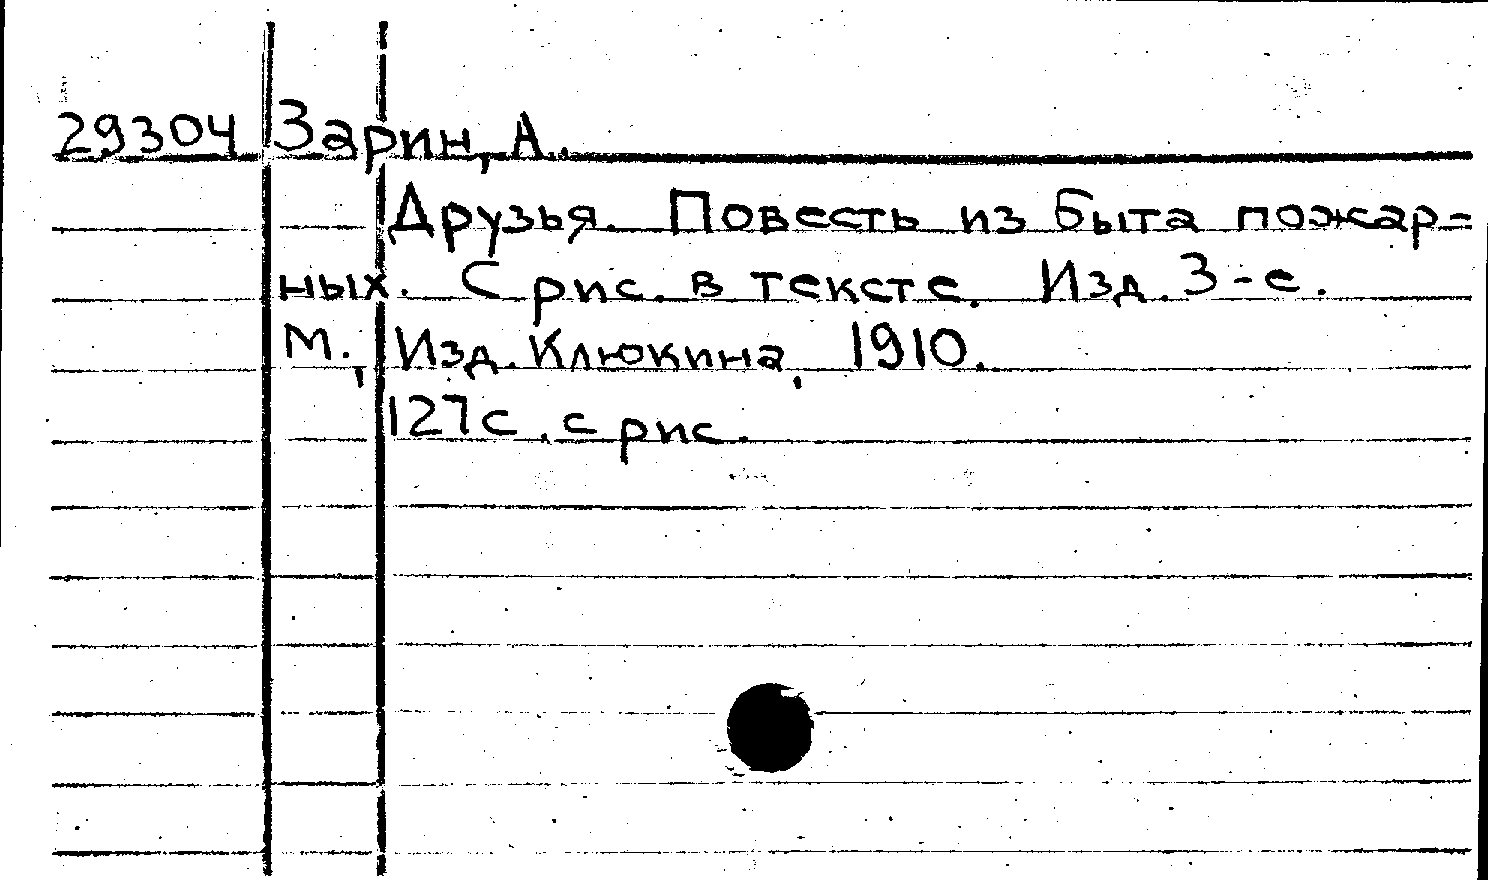 29304 Зарин, А.
Друзья. Повесть из быта пожар=
ных. С рис. в тексте. Изд. 3-е.
М., Изд. Клюкина, 1910.
127с. с рис.